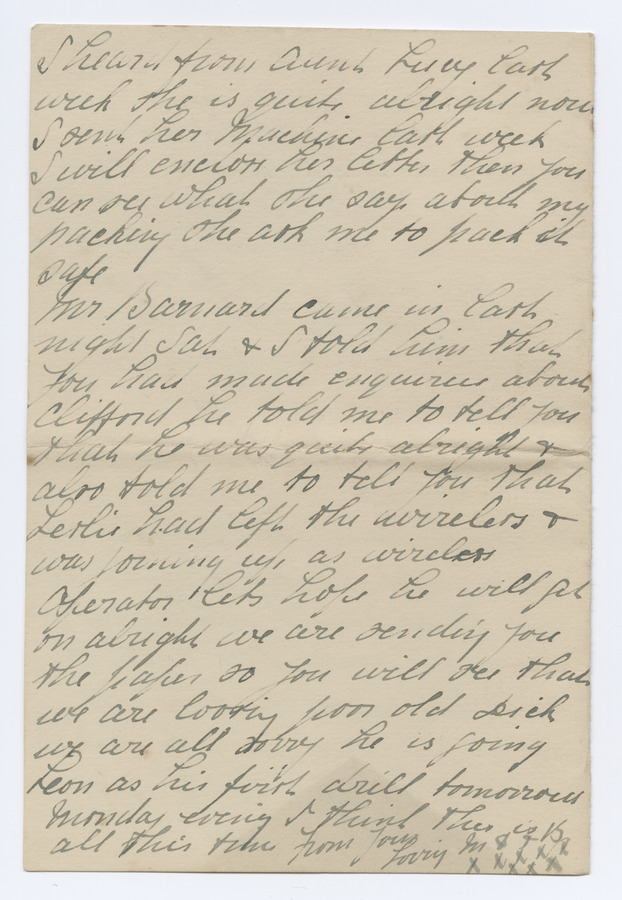 I heard from Aunt Lucy last
week she is quite alright now
I sent her Machine last week
I will enclose her letter then you
can see what she say about my
packing she ask me to pack it
safe
Mr Barnard came in last
night Sat & I told him that
you had made enquiries about
Clifford he told me to tell you
that he was quite alright &
also told me to tell you that
Leslie had left the wireless &
was joining up as wireless
Operator lets hope he will get
on alright we are sending you
the paper so you will see that
we are loosing poor old Dick
we are all sorry he is going
Leon as his first drill tomorrow
Monday evening I think this is
all this time from your
loving M &
x x x x x
x x x x